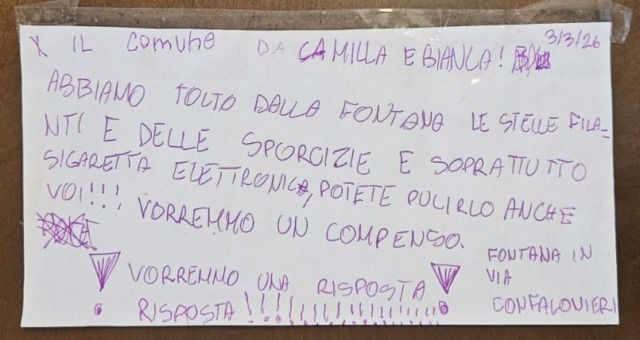 X IL comune DA CAMILLA E BIANCA! 3/3/26
ABBIAMO TOLTO DALLA FONTANA LE STELLE FILA=
NTI E DELLE SPORCIZIE E SOPRATTUTTO
SIGARETTA ELETTRONICA, POTETE PULIRLO ANCHE
VOI!!! VORREMMO UN COMPENSO.
VORREMMO UNA RISPOSTA
RISPOSTA!!!!!!!!!!!!!!!!!
FONTANA IN
VIA
CONFALONIERI